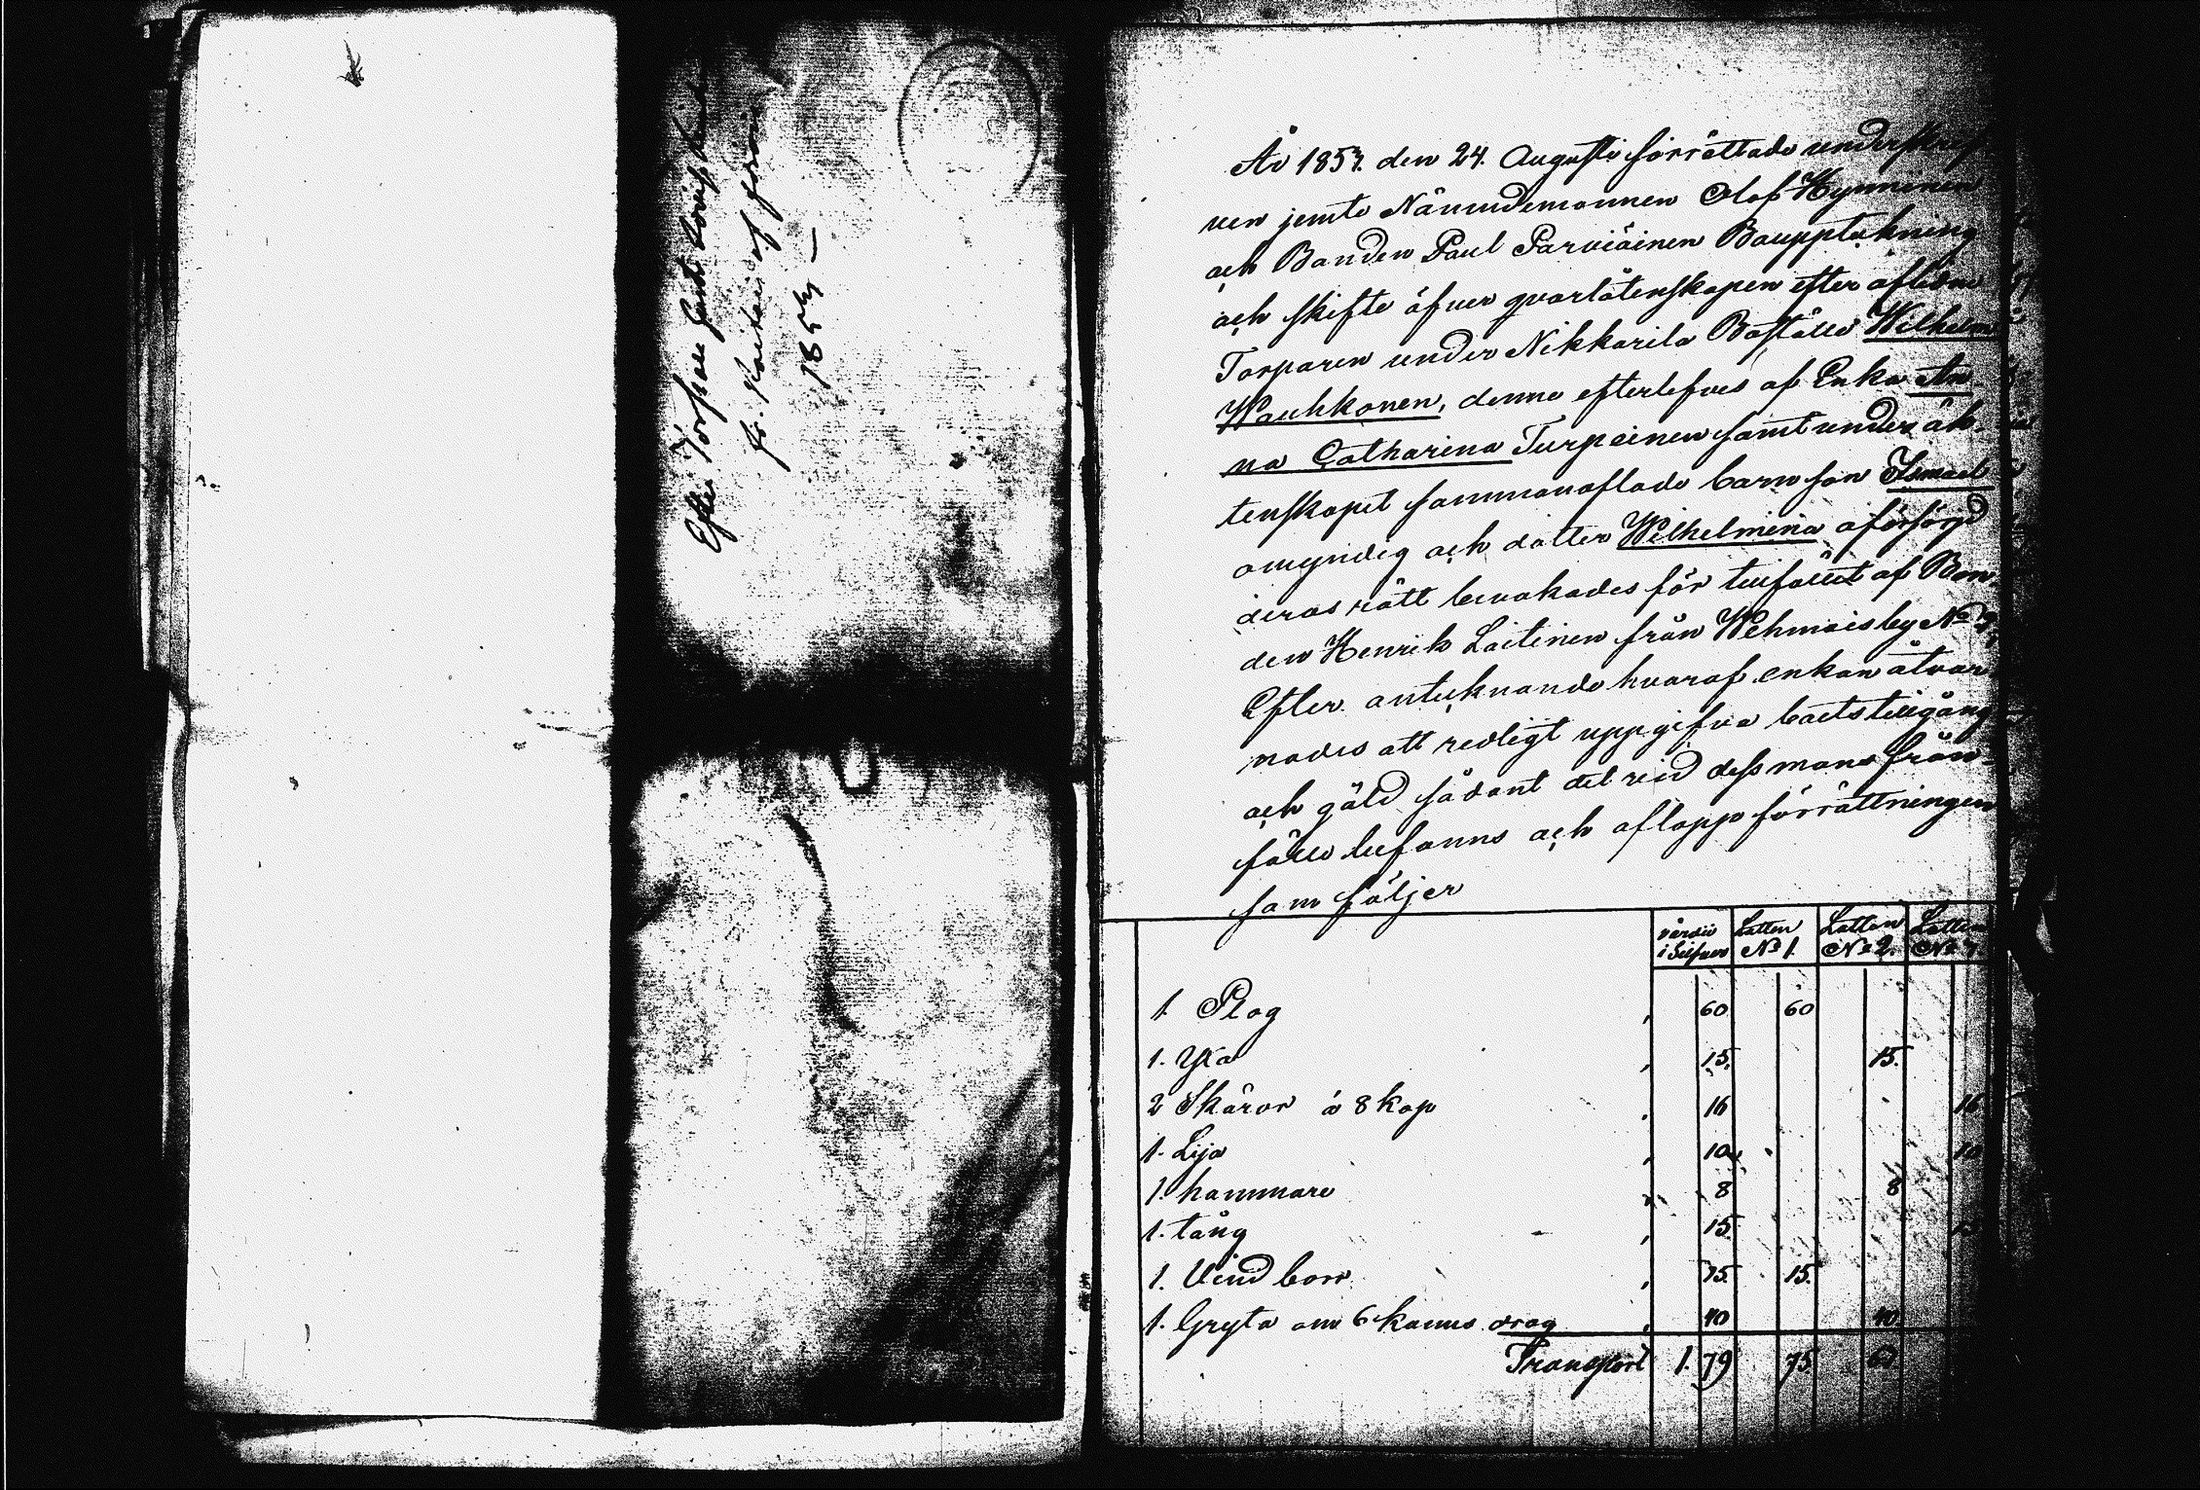 Efter Torpare
1857 —
År 1857. den 24. Augusti förrättade underskref
ven jemte Nämndemannen Olof Hynninen
och Bonden Paul Parviäinen Bouppteckning
och skifte öfver qvarlåtenskapen efter aflidne
Torparen under Nikkarila Boställe Wilhelm
Wauhkonen, denne efterlefves af Enka An
na Catharina Turpeinen samt under äk
tenskapet sammanaflade barn son Ismael
omyndig och dotter Wilhelmina oförsörgd
deras rätt bevakades för tillfället af Bon
den Henrik Laitinen från Wehmais by No
Efter antecknande hvaraf enkan åtvar
nades att redligt uppgifva boets tillgång
och gäld sådant det vid dess mans från
fälle befanns och aflopp förrättningen
som följer
värde i Silfver Lotten No 1. Lotten No 2. Lotten No
1. Plog , 60 60
1. Yxa , 15. 15.
2 Skäror à 8 kop , 16 16
1. Lija , 10 10
1. hammare , 8 8
1. tång , 15
1. Vind borr , 15. 15.
1. Gryta om 6 kannus drag , 40 40
Transport 1. 79 75 63